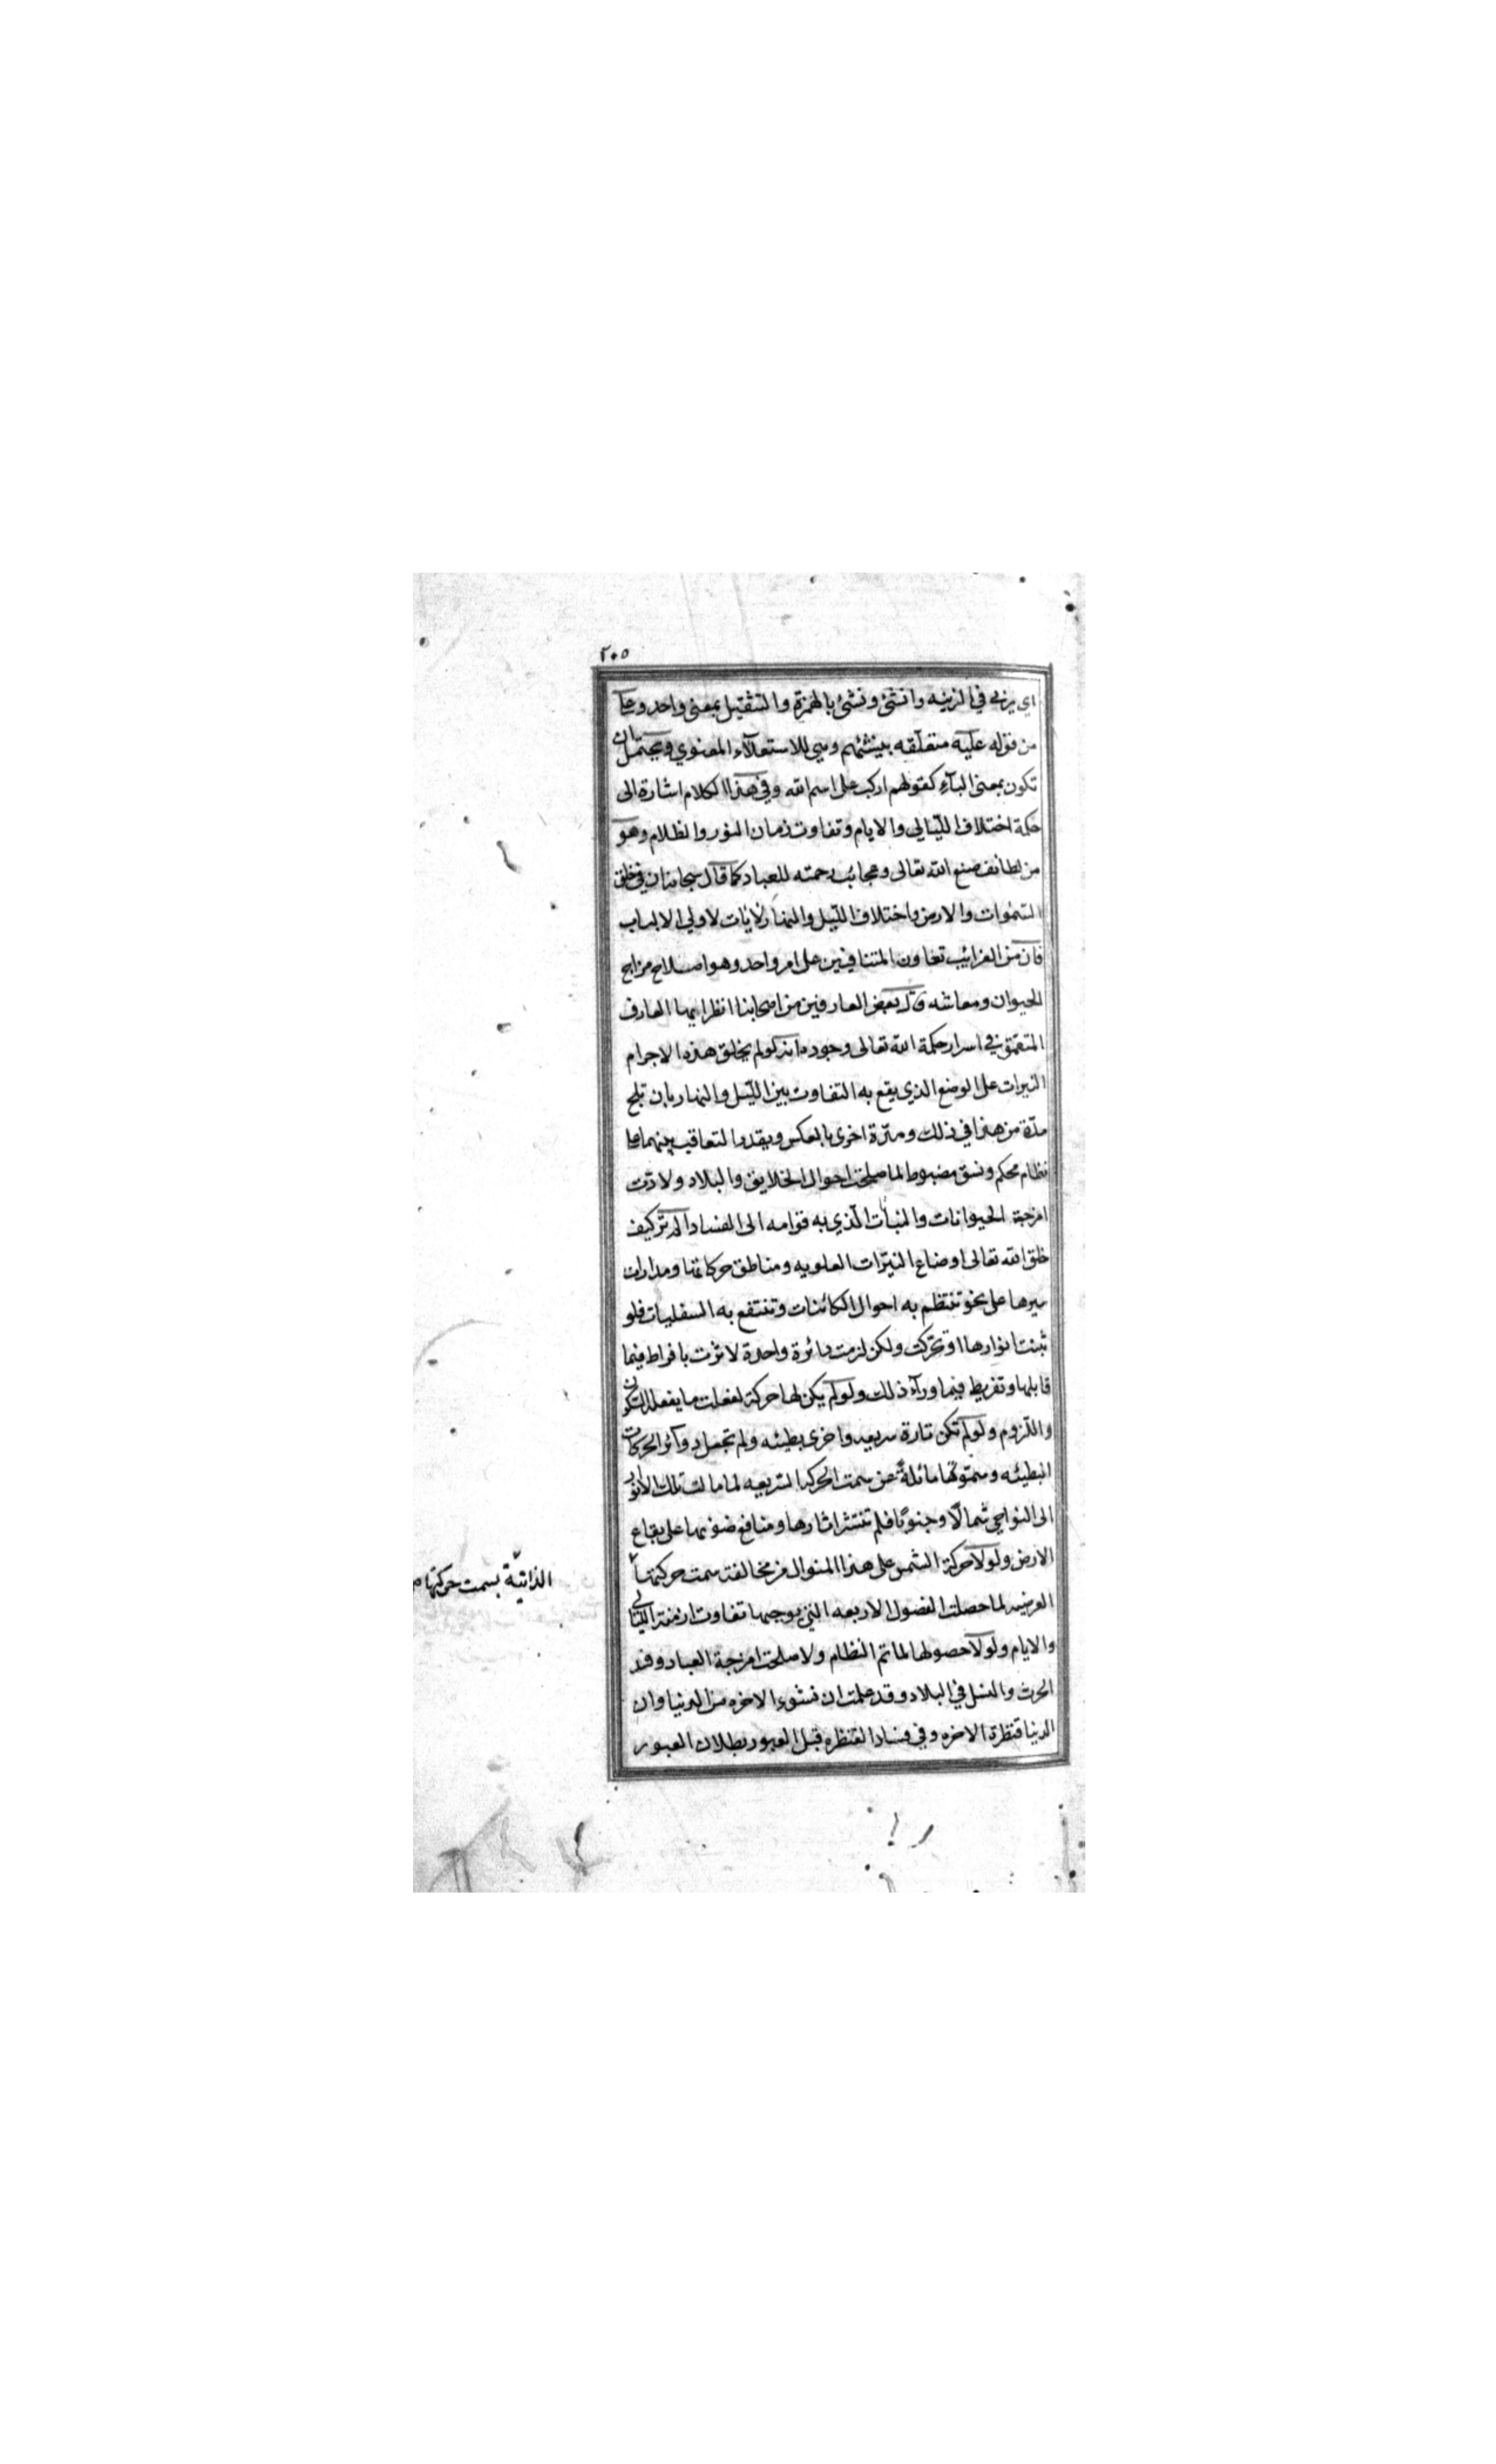 ٢٠٥
اي يربى في الزينه وانشئ ونشئ بالهمزة والتثقيل بمعنى واحد وعلى
من قوله عليه متعلّقه بينشئهم وهي للاستعلآء المعنوي ويحتمل ان
تكون بمعنى البآء كقولهم اركب على اسم الله وفي هذا الكلام اشارة الى
حكمة اختلاف اللّيالي والايام وتفاوت زمان النور والظلام وهو
من لطائف صنع الله تعالى وعجائب رحمته للعباد كما قال سبحانه ان في خلق
السّموات والارض واختلاف اللّيل والنهار لايات لاولي الالباب
فان من الغرائب تعاون المتنافيين على امر واحد وهو اصلاح مزاج
الحيوان ومعاشه قال بعض العارفين من اصحابنا انظر ايها العارف
المتعمّق في اسرار حكمة الله تعالى وجوده انه لو لم يخلق هذه الاجرام
النيرات على الوضع الذي يقع به التفاوت بين اللّيل والنهار بان يلج
مدّة من هذا في ذلك ومرّة اخرى بالعكس ويقدر التعاقب بينهما على
نظام محكم ونسق مضبوط لما صلحت احوال الخلايق والبلاد ولادّت
امزجة الحيوانات والنبات الّذي به قوامه الى الفساد الم تر كيف
خلق الله تعالى اوضاع النيّرات العلويه ومناطق حركاتها ومدارات
سيرها على نحو تنتظم به احوال الكائنات وتنتفع به السفليات فلو
ثبتت انوارها او تحرّكت ولكن لزمت دائرة واحدة لاثرت بافراط فيما
قابلها وتفريط فيما ورآء ذلك ولو لم يكن لها حركة لفعلت ما يفعله السّكون
واللّزوم ولو لم تكن تارة سريعه واخرى بطيئه ولم تجعل دوآئر الحركات
البطيئه وسموتها مائلة عن سمت الحركه السّريعه لما مالت تلك الانوار
الى النواحي شمالًا وجنوبًا فلم تنتشر اثارها ومنافع ضوئها على بقاع
الارض ولولا حركة الشمس على هذا المنوال من مخالفة سمت حركتها
الذاتيّة بسمت حركتها
العرضيه لما حصلت الفصول الاربعه التي يوجبها تفاوت ازمنة اللّيالي
والايام ولولا حصولها لما تم النظام ولا صلحت امزجة العباد وفسد
الحرث والنسل في البلاد وقد علمت ان نشوء الاخره من الدنيا وان
الدنيا قنطرة الاخره وفي فساد القنطره قبل العبور بطلان العبور